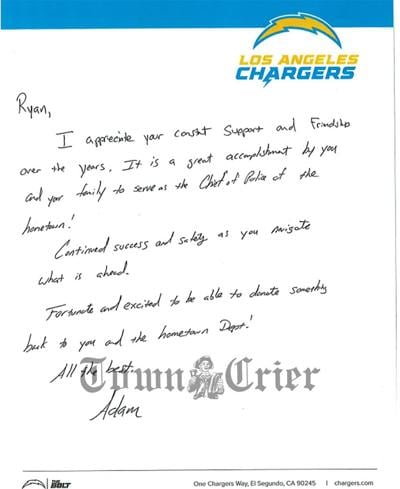 LOS ANGELES
CHARGERS
Ryan,
I appreciate your constnt Support and Friendship
over the years. It is a great accomplishment by you
and your family to serve as the Chief of Police of the
hometown!
Continued success and safety as you navigate
what is ahead.
Fortunate and excited to be able to donate something
back to you and the hometown Dept!
All the best.
Town Crier
Adam
THE BOLT
One Chargers Way, El Segundo, CA 90245 | chargers.com